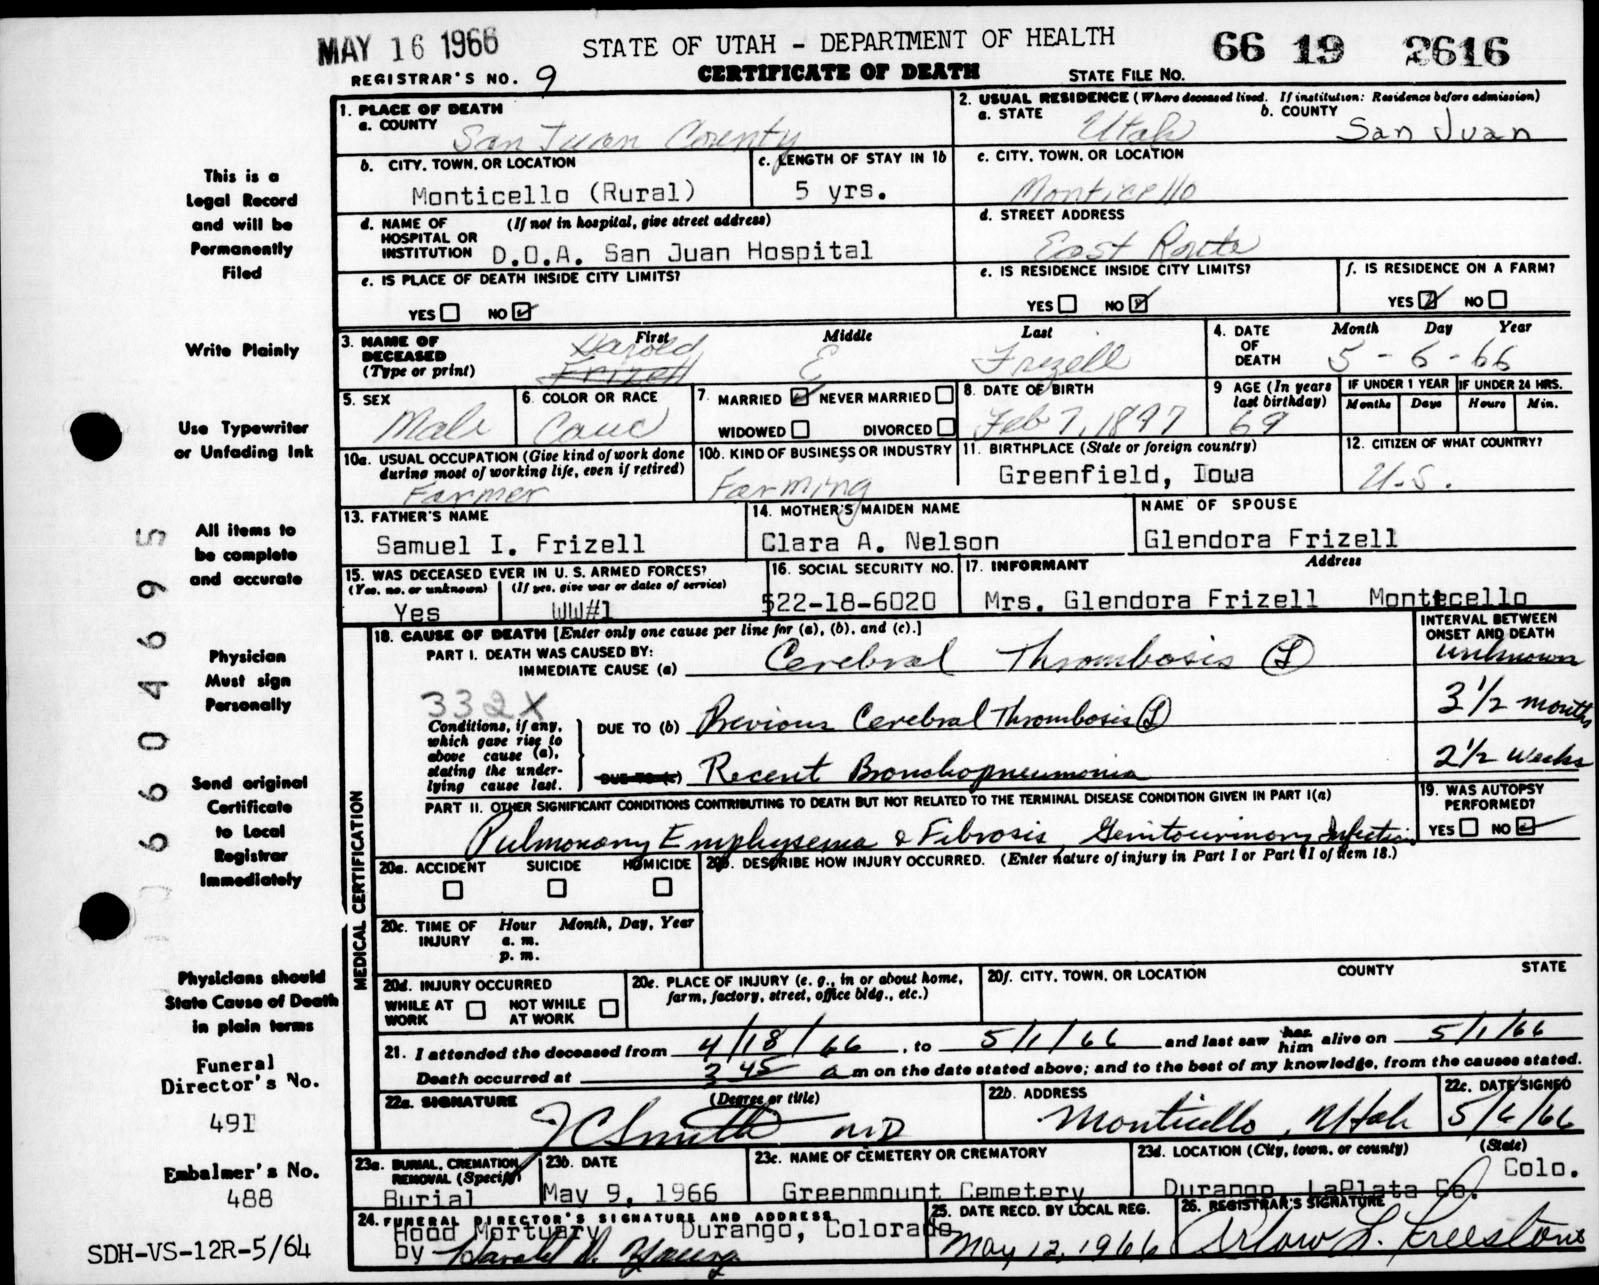 MAY 16 1966 STATE OF UTAH - DEPARTMENT OF HEALTH 66 19 2616
REGISTRAR'S NO. 9 CERTIFICATE OF DEATH STATE FILE NO.
1. PLACE OF DEATH
a. COUNTY San Juan County
2. USUAL RESIDENCE (Where deceased lived. If institution: Residence before admission)
a. STATE Utah b. COUNTY San Juan
b. CITY, TOWN, OR LOCATION Monticello (Rural)
c. LENGTH OF STAY IN 1b 5 yrs.
c. CITY, TOWN, OR LOCATION Monticello
d. NAME OF HOSPITAL OR INSTITUTION (If not in hospital, give street address) D.O.A. San Juan Hospital
d. STREET ADDRESS East Route
e. IS PLACE OF DEATH INSIDE CITY LIMITS?
YES NO
e. IS RESIDENCE INSIDE CITY LIMITS?
YES NO
f. IS RESIDENCE ON A FARM?
YES NO
3. NAME OF DECEASED (Type or print)
First Middle Last
Harold E Frizell
Frizell
4. DATE OF DEATH Month Day Year
5-6-66
5. SEX Male
6. COLOR OR RACE Cauc
7. MARRIED NEVER MARRIED
WIDOWED DIVORCED
8. DATE OF BIRTH Feb 7, 1897
9 AGE (In years last birthday) 69
IF UNDER 1 YEAR IF UNDER 24 HRS.
Months Days Hours Min.
10a. USUAL OCCUPATION (Give kind of work done during most of working life, even if retired)
Farmer
10b. KIND OF BUSINESS OR INDUSTRY
Farming
11. BIRTHPLACE (State or foreign country)
Greenfield, Iowa
12. CITIZEN OF WHAT COUNTRY?
U.S.
13. FATHER'S NAME
Samuel I. Frizell
14. MOTHER'S MAIDEN NAME
Clara A. Nelson
NAME OF SPOUSE
Glendora Frizell
15. WAS DECEASED EVER IN U. S. ARMED FORCES?
(Yes, no, or unknown) (If yes, give war or dates of service)
Yes WW#1
16. SOCIAL SECURITY NO.
522-18-6020
17. INFORMANT Address
Mrs. Glendora Frizell Montecello
MEDICAL CERTIFICATION
18. CAUSE OF DEATH [Enter only one cause per line for (a), (b), and (c).]
INTERVAL BETWEEN ONSET AND DEATH
PART I. DEATH WAS CAUSED BY:
IMMEDIATE CAUSE (a) Cerebral Thrombosis (L) unknown
332X
Conditions, if any, which gave rise to above cause (a), stating the underlying cause last.
DUE TO (b) Previous Cerebral Thrombosis (L) 3 1/2 months
DUE TO (c) Recent Bronchopneumonia 2 1/2 weeks
PART II. OTHER SIGNIFICANT CONDITIONS CONTRIBUTING TO DEATH BUT NOT RELATED TO THE TERMINAL DISEASE CONDITION GIVEN IN PART I(a)
Pulmonary Emphysema & Fibrosis, Genitourinary Infection
19. WAS AUTOPSY PERFORMED?
YES NO
20a. ACCIDENT SUICIDE HOMICIDE
20b. DESCRIBE HOW INJURY OCCURRED. (Enter nature of injury in Part I or Part II of item 18.)
20c. TIME OF INJURY Hour Month, Day, Year
a. m.
p. m.
20d. INJURY OCCURRED
WHILE AT WORK NOT WHILE AT WORK
20e. PLACE OF INJURY (e. g., in or about home, farm, factory, street, office bldg., etc.)
20f. CITY, TOWN, OR LOCATION COUNTY STATE
21. I attended the deceased from 4/18/66, to 5/1/66 and last saw her him alive on 5/1/66
Death occurred at 3 45 a m on the date stated above; and to the best of my knowledge, from the causes stated.
22a. SIGNATURE (Degree or title)
JC Smith MD
22b. ADDRESS
Monticello, Utah
22c. DATE SIGNED
5/6/66
23a. BURIAL, CREMATION REMOVAL (Specify)
Burial
23b. DATE
May 9, 1966
23c. NAME OF CEMETERY OR CREMATORY
Greenmount Cemetery
23d. LOCATION (City, town, or county) (State)
Durango LaPlata Co. Colo.
24. FUNERAL DIRECTOR'S SIGNATURE AND ADDRESS
Hood Mortuary Durango, Colorado
by Harold D. Young
25. DATE RECD. BY LOCAL REG.
May 12, 1966
26. REGISTRAR'S SIGNATURE
Arlow L. Freestone
This is a
Legal Record
and will be
Permanently
Filed
Write Plainly
Use Typewriter
or Unfading Ink
All items to
be complete
and accurate
Physician
Must sign
Personally
Send original
Certificate
to Local
Registrar
Immediately
Physicians should
State Cause of Death
in plain terms
Funeral
Director's No.
491
Embalmer's No.
488
SDH-VS-12R-5/64
0660404695